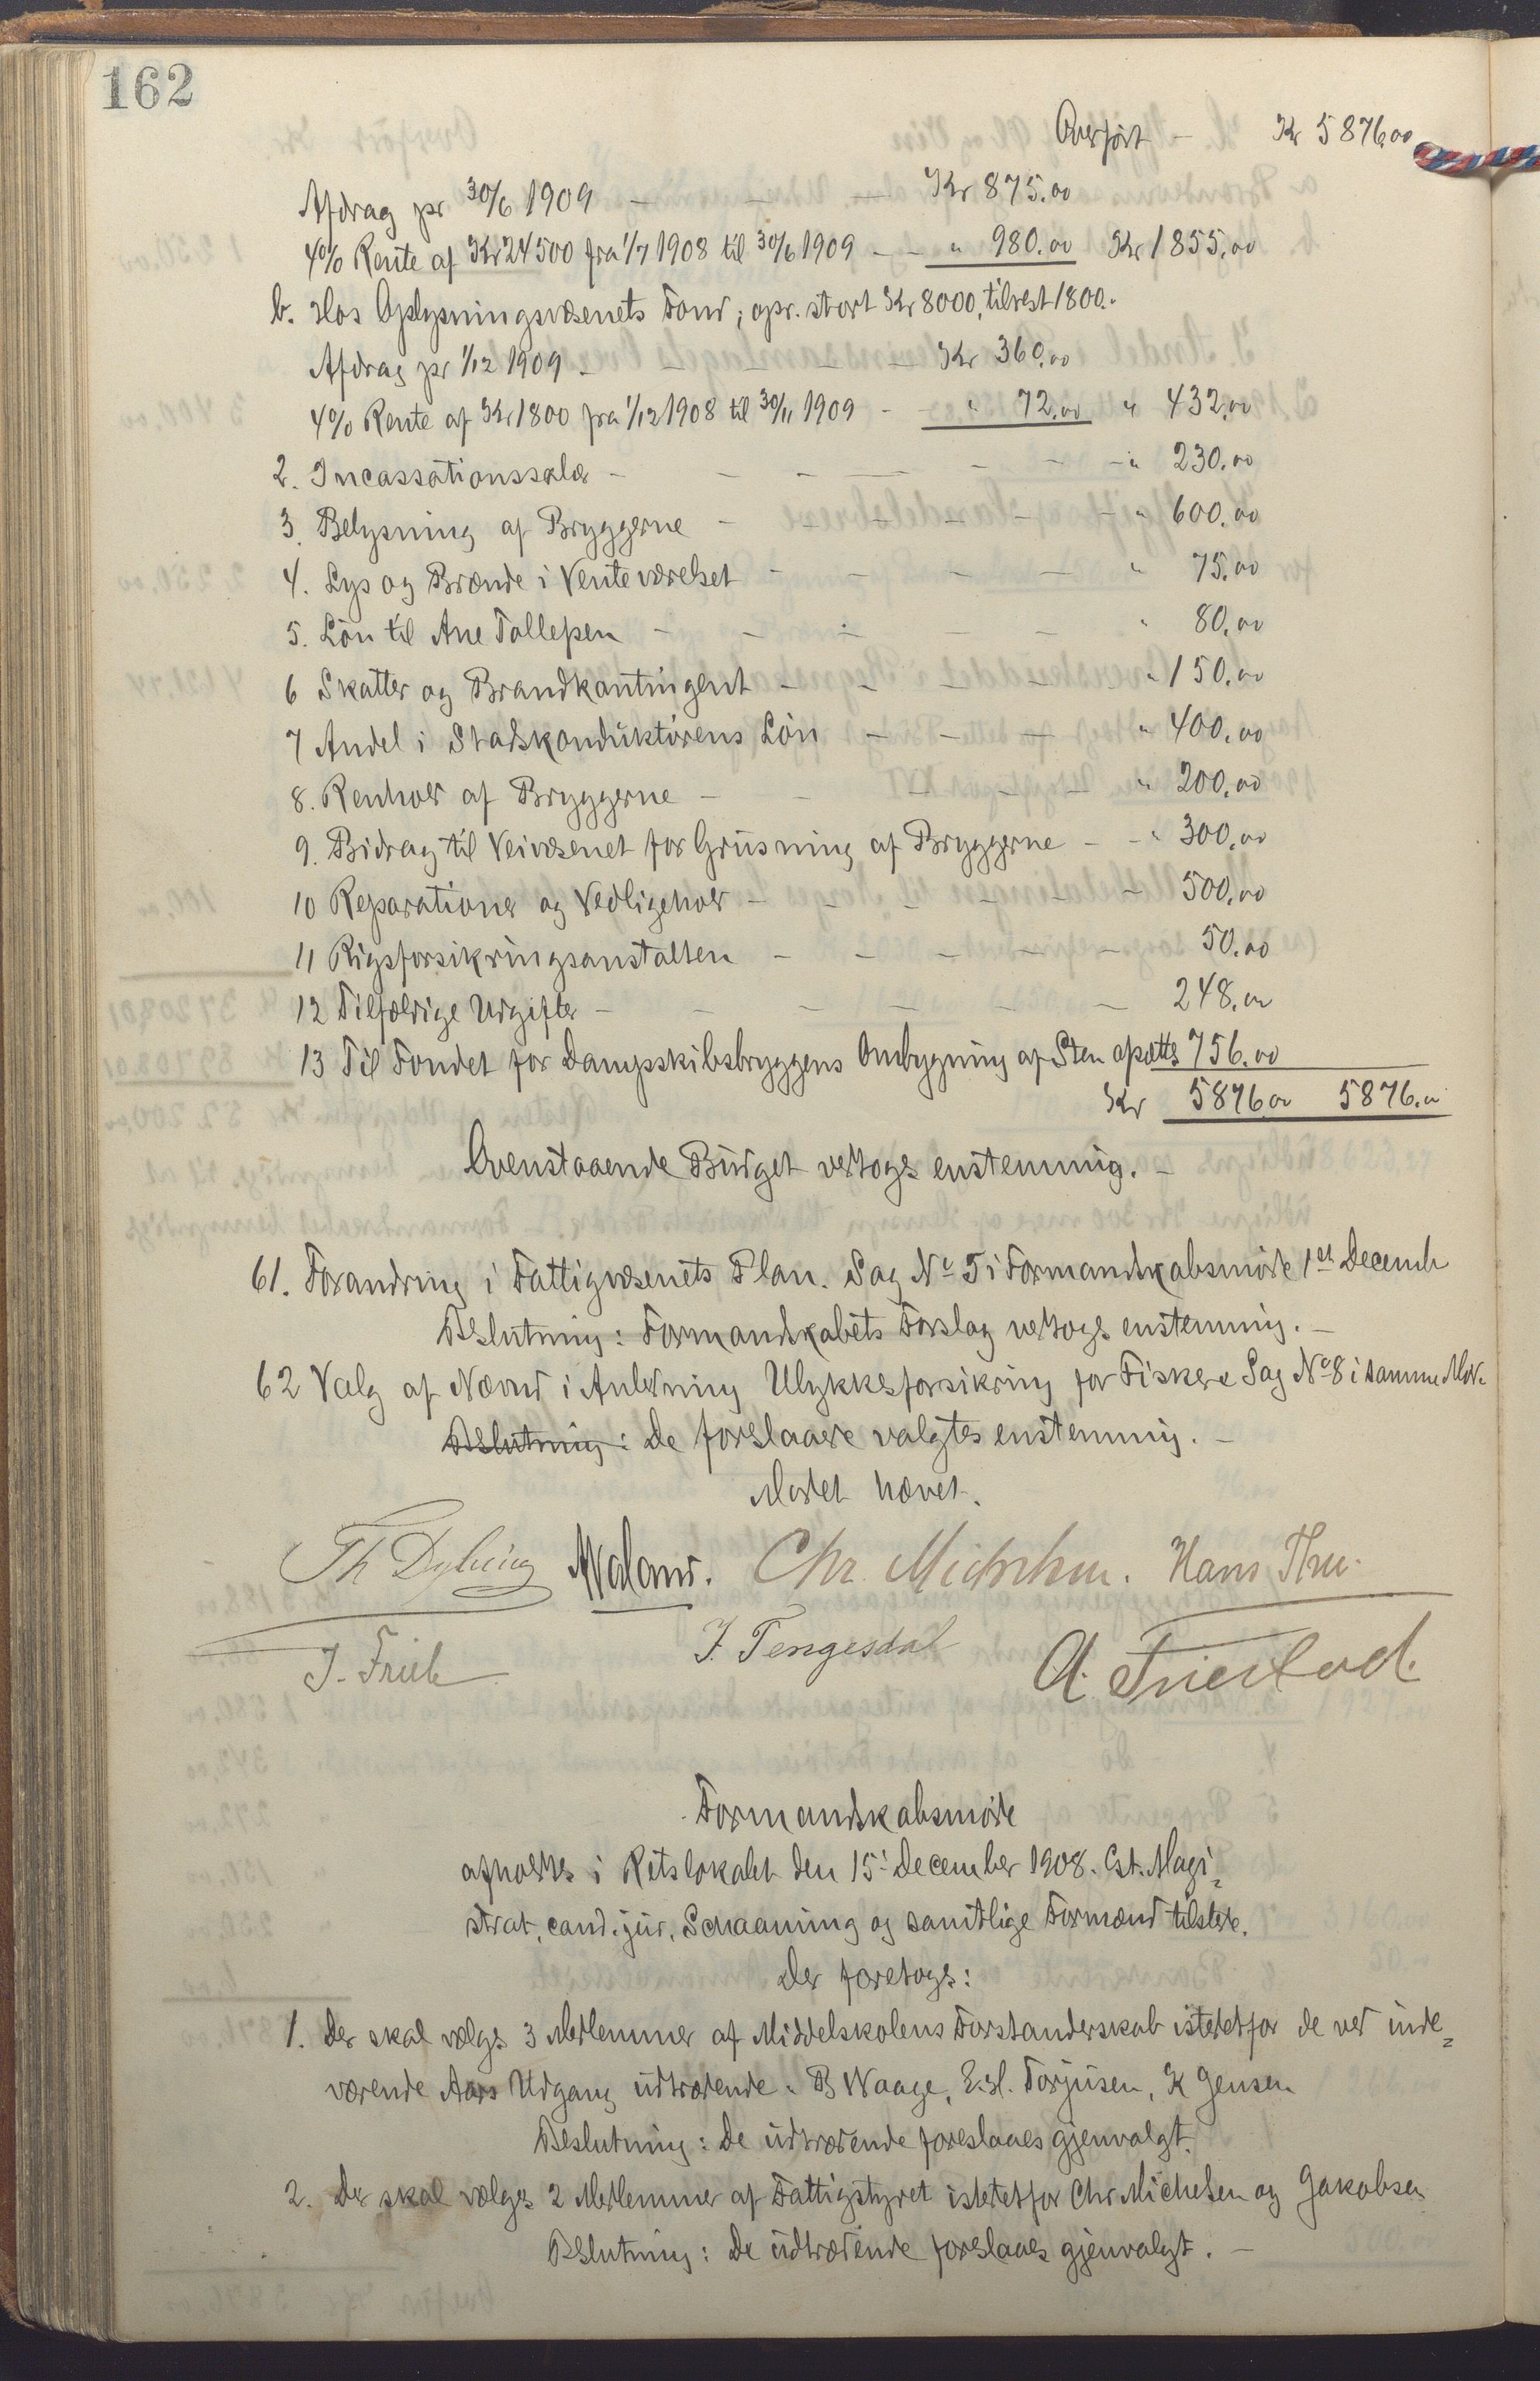 162
Overført - Kr 5876,00
Afdrag pr 30/6 1909 - - - Kr 875.00
4% Rente af Kr 24500 fra 1/7 1908 til 30/6 1909 - - " 980.00 Kr 1855,00
b. Hos Oplysningsvæsenets Fond; opr. stort Kr 8000, tilrest 1800.-
Afdrag pr 1/12 1909 - - - - - Kr 360,00
4% Rente af Kr 1800 fra 1/12 1908 til 30/11 1909 - - " 72,00 " 432,00
2. Incassationssalær - - - - - - - " 230,00
3. Belysning af Bryggerne - - - - - - " 600,00
4. Lys og Brænde i Venteværelset - - - - - " 75,00
5. Løn til Ane Tollefsen - - - - - " 80,00
6 Skatter og Brandkontingent - - - - - " 150,00
7 Andel i Stadskonduktørens Løn - - - - " 400,00
8. Renhold af Bryggerne - - - - - - " 200,00
9. Bidrag til Veivæsenet for Grusning af Bryggerne - - " 300,00
10 Reparationer og Vedligehold - - - - - - 500,00
11 Rigsforsikringsanstalten - - - - - 50,00
12 Tilfældige Udgifter - - - - - - 248,00
13 Til Fondet for Dampskibsbryggens Ombygning af Sten afsættes 756.00
Kr 5876,00 5876.00
Ovenstaaende Budget vedtoges enstemmig. -
61. Forandring i Fattigvæsenets Plan. Sag No 5 i Formandskabsmøde 1st Decemb
Beslutning: Formandskabets Forslag vedtoges enstemmig. -
62 Valg af Nævnd i Anledning Ulykkesforsikring for Fiskere Sag No 8 i samme Møde
Beslutning: De foreslaaede valgtes enstemmig. -
Mødet hævet.
Th Dybing Maland. Chr. Michelsen. Hans Thu.
J. Friele J. Tengesdal A. Friestad.
Formandskabsmøde
afholdtes i Retslokalet den 15' December 1908. Cst. Magi-
strat, cand. jur. Schaaning og samtlige Formænd tilstede.
Der foretoges:
1. Der skal vælges 3 Medlemmer af Middelskolens Forstanderskab istedetfor de ved inde-
værende Aars Udgang udtrædende. B Waage, E. H. Torjusen, K Jensen
Beslutning: De udtrædende foreslaaes gjenvalgt.
2. Der skal vælges 2 Medlemmer af Fattigstyret istedetfor Chr Michelsen og Jakobsen
Beslutning: De udtrædende foreslaaes gjenvalgt. -